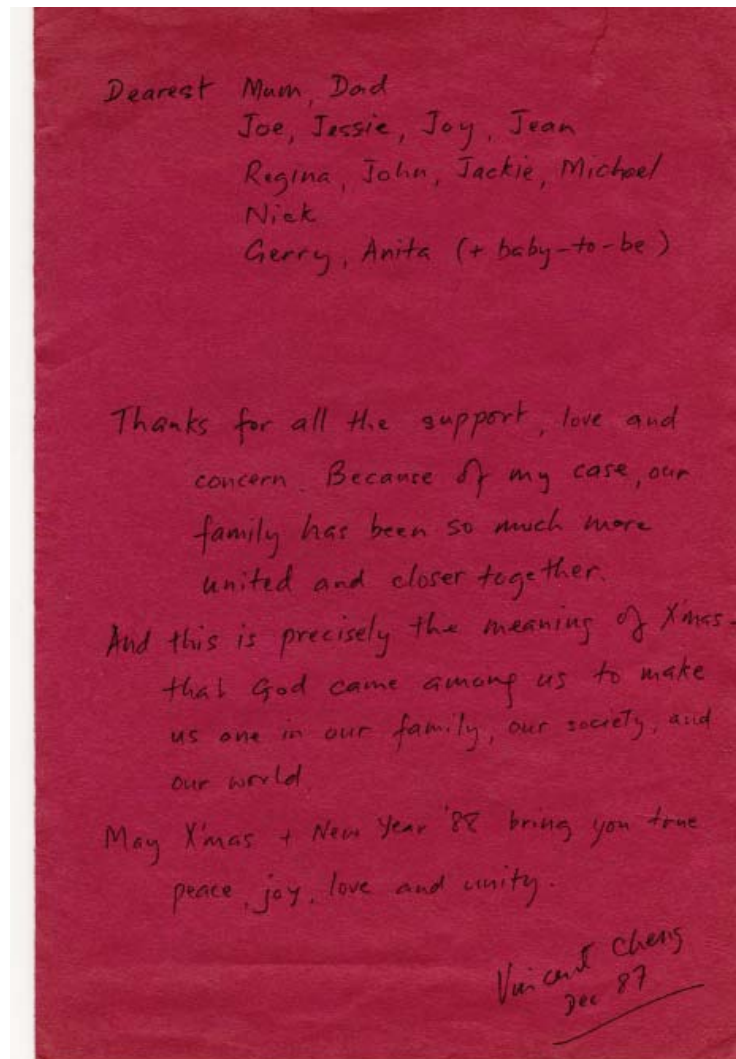 Dearest Mum, Dad
Joe, Jessie, Joy, Jean
Regina, John, Jackie, Michael
Nick
Gerry, Anita (+ baby-to-be)
Thanks for all the support, love and
concern. Because of my case, our
family has been so much more
united and closer together.
And this is precisely the meaning of X'mas -
that God came among us to make
us one in our family, our society, and
our world.
May X'mas + New Year '88 bring you true
peace, joy, love and unity.
Vincent Cheng
Dec 87